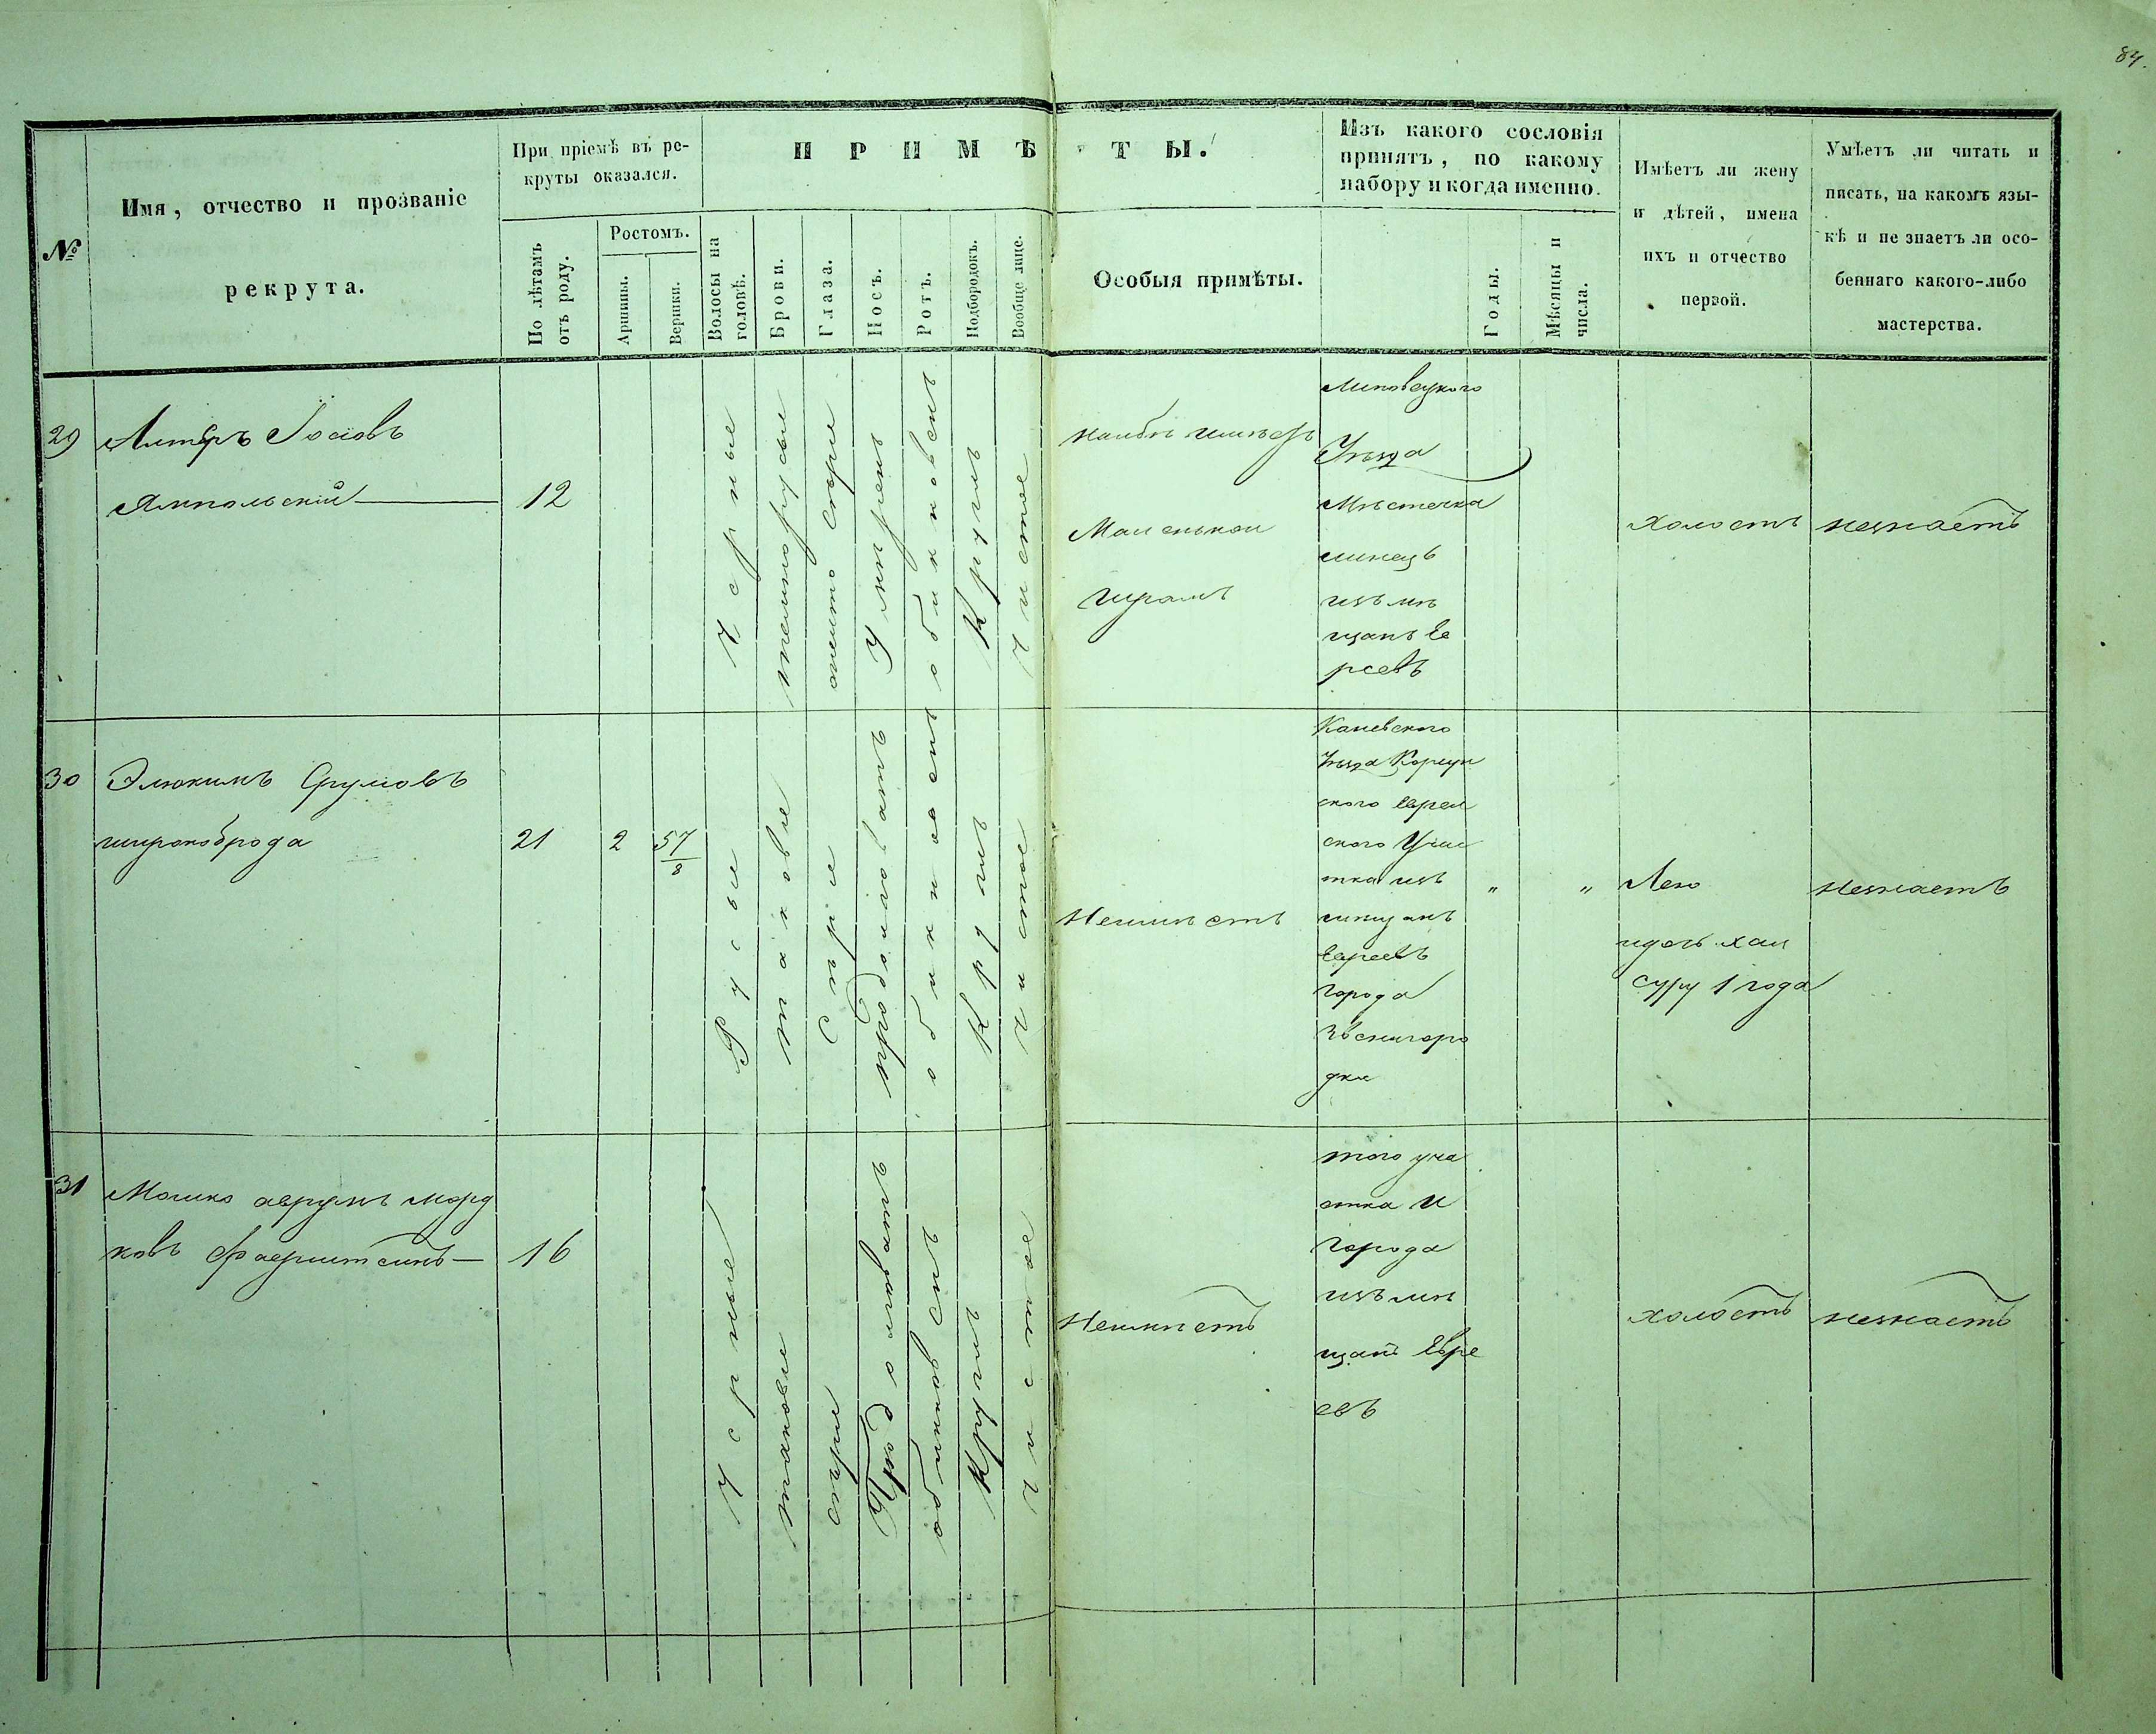 84.
№
Имя, отчество и прозваніе
рекрута.
При пріемѣ въ ре-
круты оказался.
По лѣтамъ
отъ роду.
Ростомъ.
Аршины.
Вершки.
ПРИМѢТЫ.
Волосы на
головѣ.
Брови.
Глаза.
Носъ.
Ротъ.
Подбородокъ.
Вообще лице.
Особыя примѣты.
Изъ какого сословія
принятъ, по какому
набору и когда именно.
Годы.
Мѣсяцы и
числа.
Имѣетъ ли жену
и дѣтей, имена
ихъ и отчество
первой.
Умѣетъ ли читать и
писать, на какомъ язы-
кѣ и не знаетъ ли осо-
беннаго какого-либо
мастерства.
29
Алтеръ Іосіовъ
Ямпольскій
12
Черные
темнорусые
Умѣренъ
обикновенъ
Круглъ
чистое
Маленькои
шрамъ
Липовецкого
Уѣзда
Мѣстечка
линецъ
изъ мѣ
щанъ Ев
реевъ
холостъ
незнаетъ
30
Элюкимъ Сруліовъ
широкоброда
21
2
57/8
Русые
таковые
Сѣрые
продолговатъ
обикновенъ
Круглъ
чистое
Неимѣетъ
Каневского
Уѣзда Корсун
ского Еврей
ского Учас
тка изъ
мѣщанъ
Евреевъ
города
Звенигоро
дки
"
"
Суру 1 года
незнаетъ
31
Мошко аврумъ морд
ковъ Фаерштеинъ
16
Черные
таковые
сѣрые
Продолговатъ
обикновенъ
Круглъ
чистое
Неимѣетъ
того уча
стка и
города
изъ мѣ
щанъ Евре
евъ
холостъ
незнаетъ